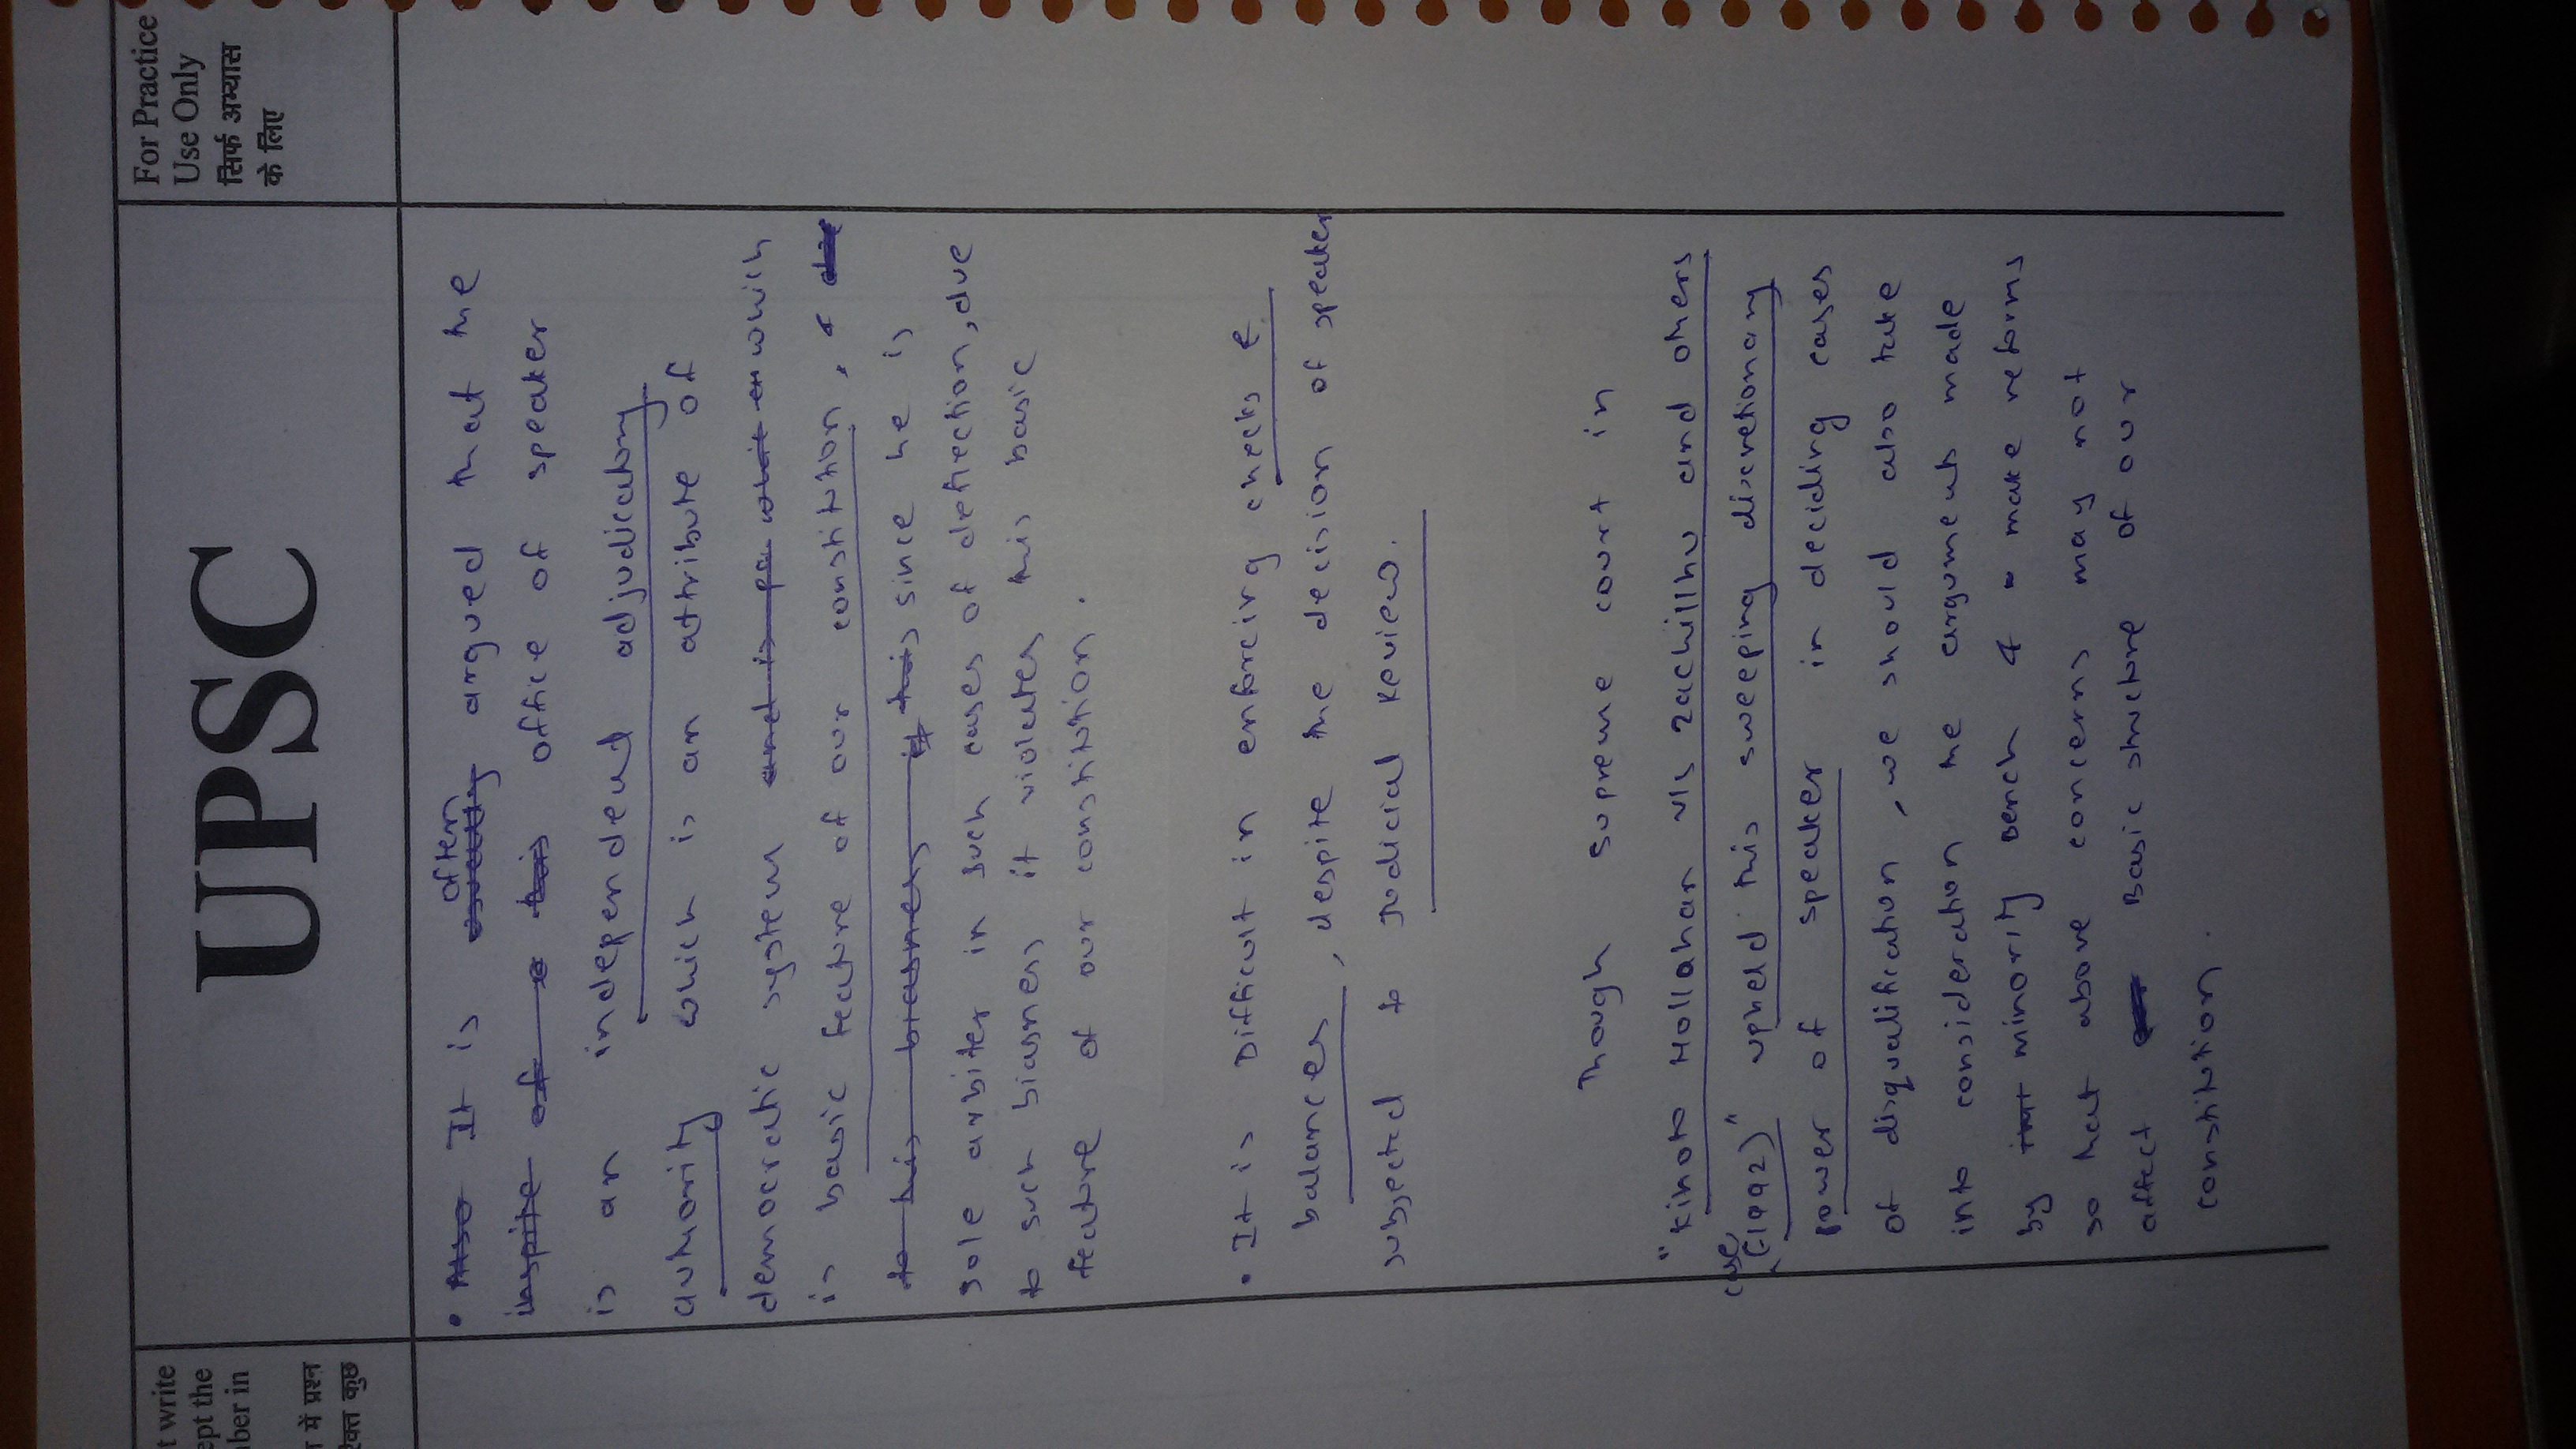 UPSC
For Practice
Use Only
सिर्फ अभ्यास
के लिए
t write
ept the
ber in
में प्रश्न
कुछ
• It is often argued that the
office of speaker
is an independent adjudicatory
authority which is an attribute of
democratic system which
is basic feature of our constitution, &
since he is
sole arbiter in such cases of defection, due
to such biasness it violates this basic
feature of our constitution.
• It is Difficult in enforcing checks &
balances, despite the decision of speaker
subjected to Judicial Review.
Though supreme court in
"Kihoto Hollahan v/s Zachillhu and others
case (1992)" upheld this sweeping discretionary
power of speaker in deciding cases
of disqualification, we should also take
into consideration the arguments made
by minority Bench & make reforms
so that above concerns may not
affect Basic structure of our
constitution.